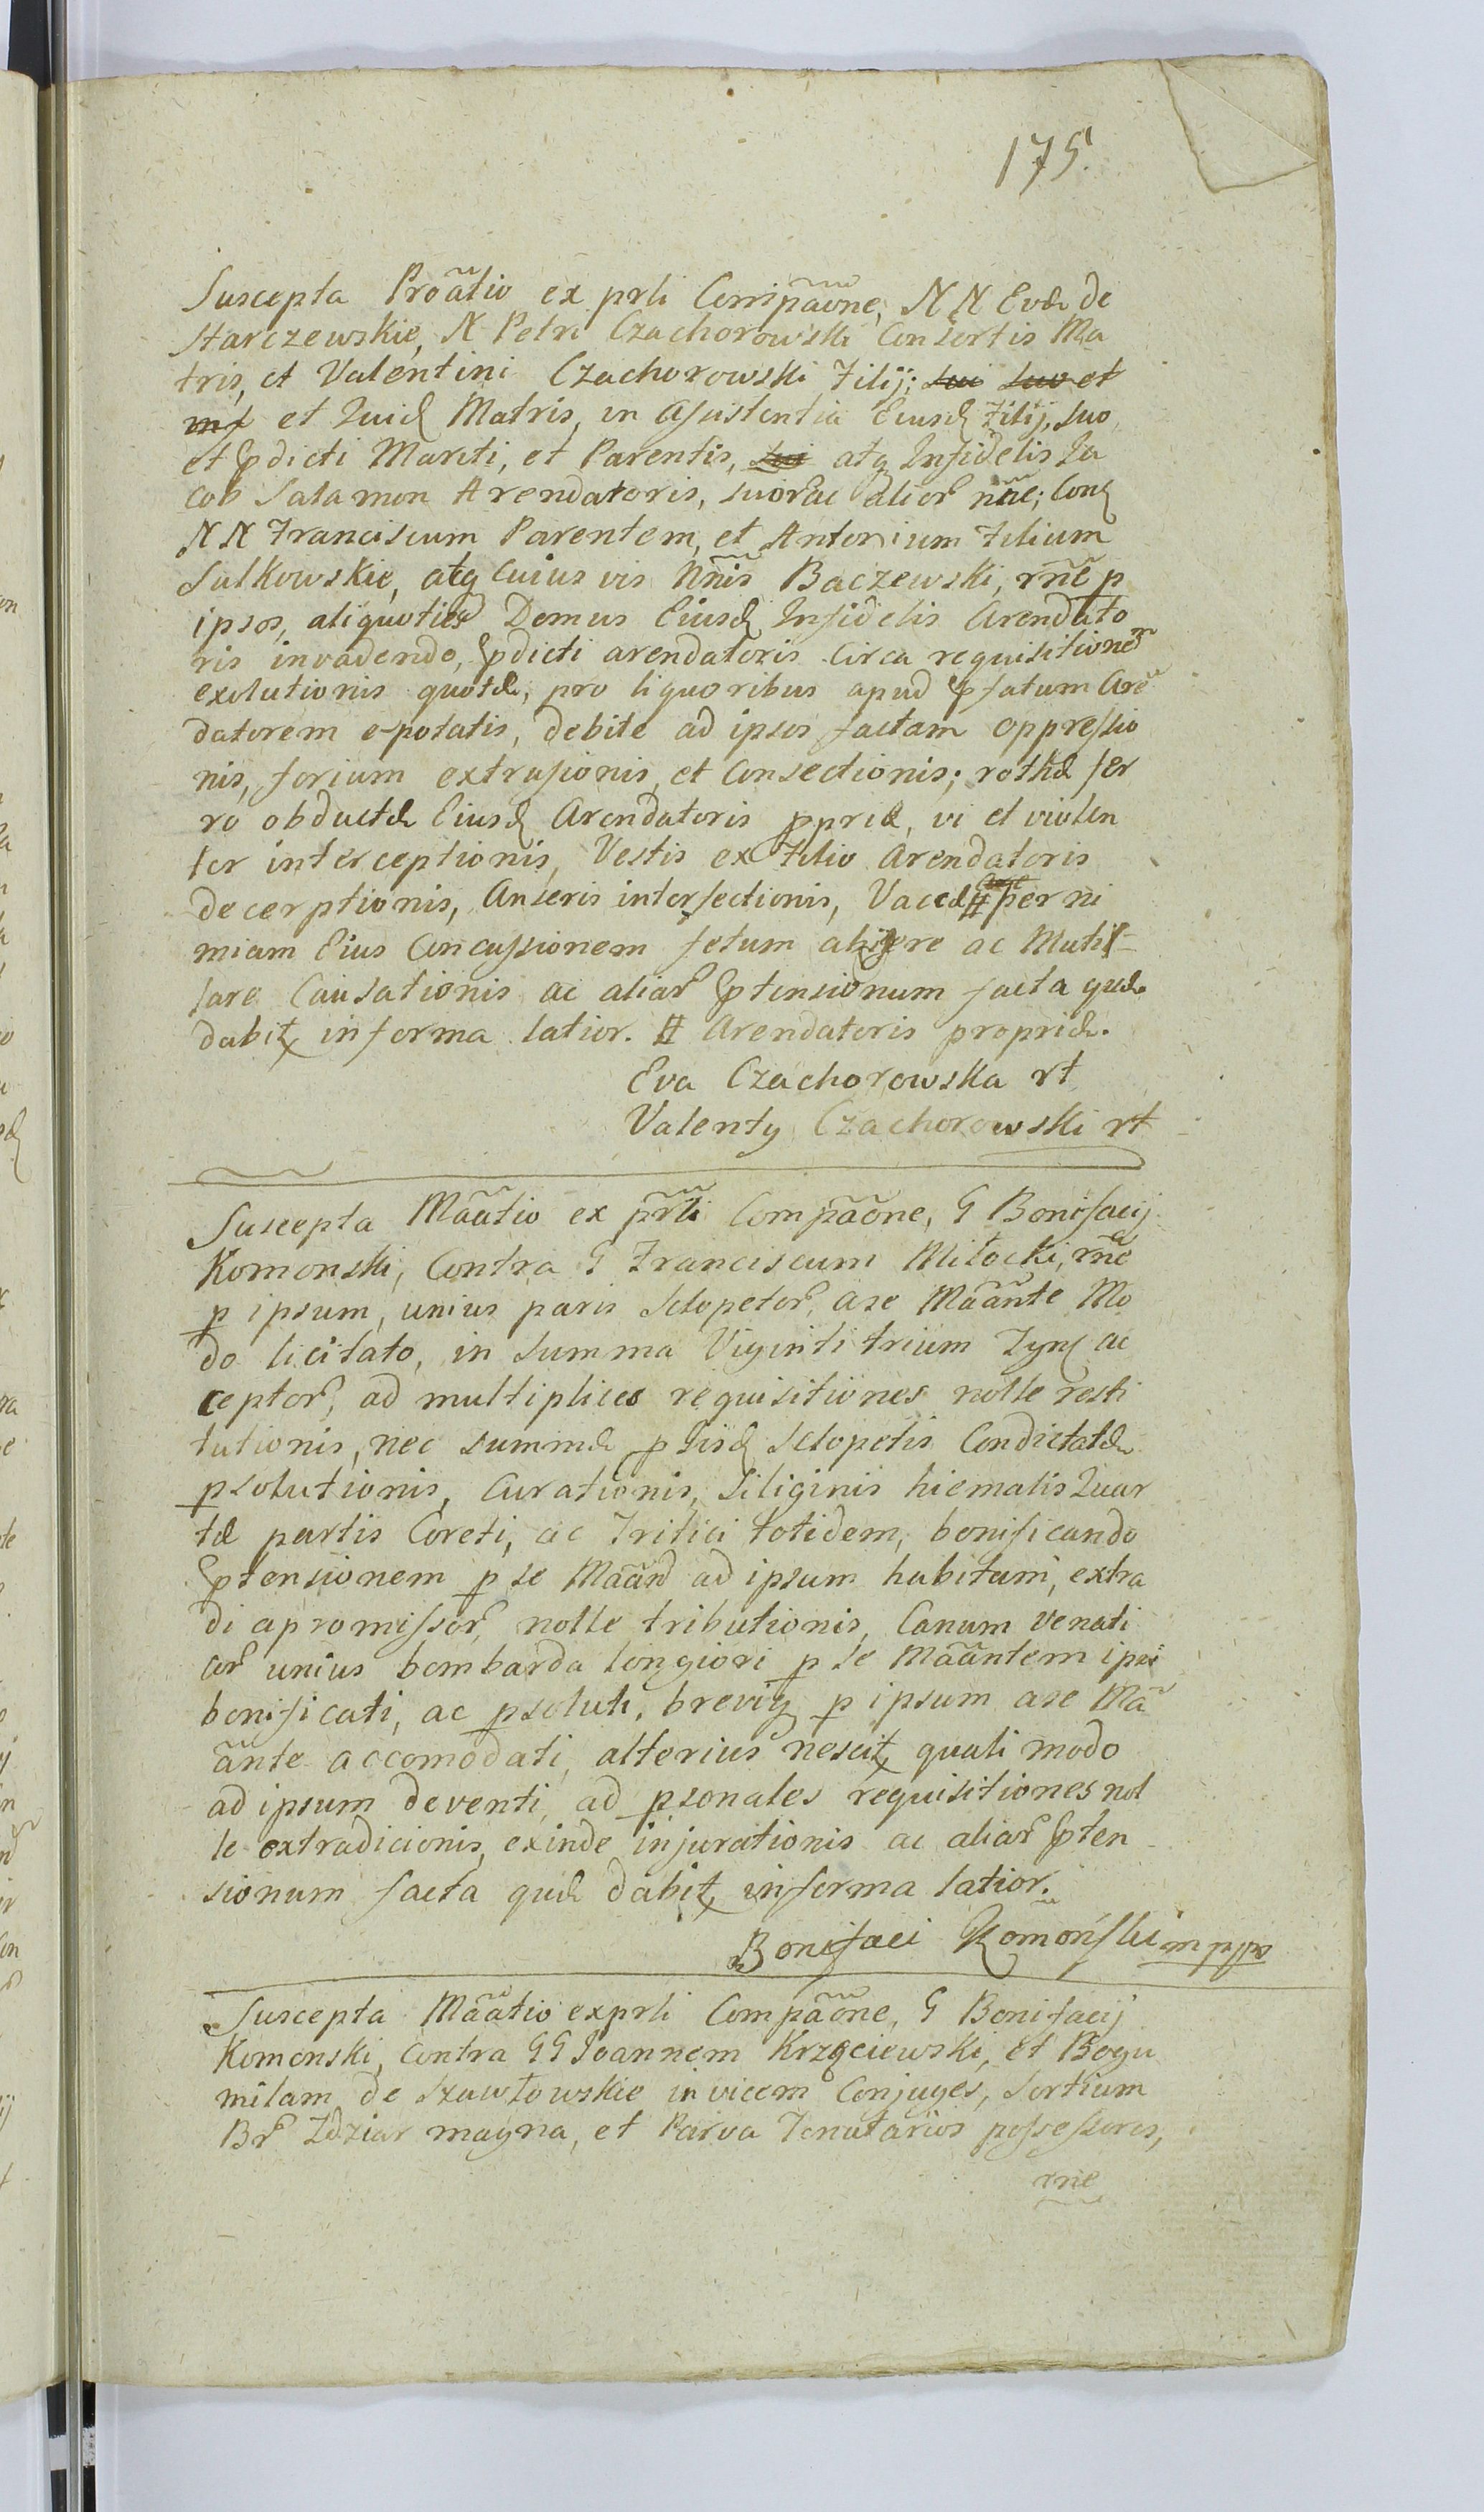 175.
Suscepta Proãtio ex prli Compãone, NN Evæ de
Starczewskie, N Petri Czachorowski Consortis Ma
tris, et Valentini Czachorowski Filij; sui suo et
et quid Matris, in Assistentia Eiusd Filij, suo,
et prdicti Mariti, et Parentis, sui atq Infidelis Ja
cob Salamon Arendatoris, suor ac alior nñe; Con
NN Franciscum Parentem, et Antonium Filium
Sulkowskie, atq cuius vis Nñis Baczewski, rñe p
ipsos, aliquoties Domus Eiusd Infidelis Arendato
ris invadendo, prdicti arendatoris circa requisitionem
exolutionis quotæ, pro liquoribus apud prfatum Are
datorem e-potatis, debite ad ipsos factam oppressio
nis, forium extrusionis, et Consectionis; rothæ fer
ro obductæ Eiusd Arendatoris ppriæ, vi et violen
ter interceptionis, Vestis ex Filio Arendatoris
decerptionis, Anseris interfectionis, Vaccæ # per ni
miam Eius Concussionem fetum abigere ac Mutil
lare Causationis ac aliar prtensionum facta quæ
dabit informa latior. # Arendatoris propriæ.
Eva Czachorowska rt
Valenty Czachorowski rt
Suscepta Mããtio ex prli Compãone, G Bonifacij
Komonski, Contra G Franciscum Miłocki, rñe
p ipsum, unius paris Sclopetor, a se Mããnte Mo
do licitato, in summa Viginti trium Tyn ac
ceptor, ad multiplices requisitiones nolle resti
tutionis, nec summæ p iisd Sclopetis Condictatæ
psolutionis, Curationis, Siliginis hiematis Quar
tæ partis Coreti, ac Tritici totidem, bonificando
prtensionem p se Mããnd ad ipsum habitam, extra
di apromissor, nolle tributionis, Canum Venati
cor unius bombarda longiori p se Mããntem ipsi
bonificati, ac psoluti, brevig p ipsum a se Mã
ãnte accomodati, alterius nescit quali modo
ad ipsum deventi, ad psonales requisitiones nol
le extradicionis, exinde injurationis ac aliar prten
sionum facta quæ dabit informa latior.
Bonifaci Komoński mppo
Suscepta Mããtio exprli Compãone, G Bonifacij
Komonski, Contra GG Joannem Krzęciewski, et Bogu
milam de Szawłowskie invicem Conjuges, Sortium
Br Zdziar magna, et Parva Tenutarios possessores,
rne